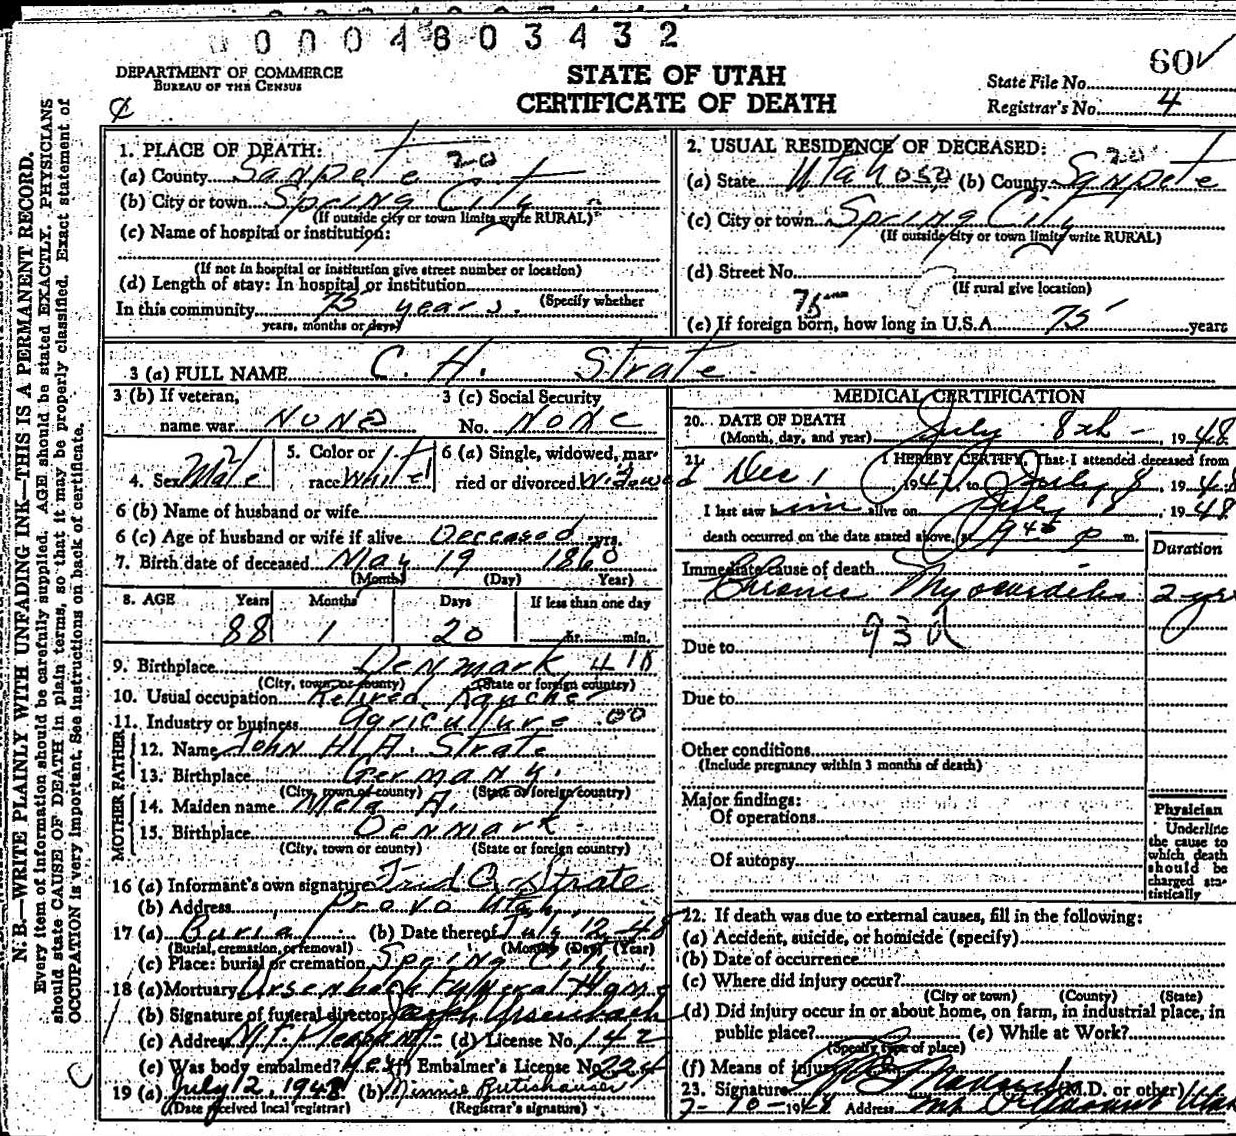 0004803432
60✓
DEPARTMENT OF COMMERCE
BUREAU OF THE CENSUS
STATE OF UTAH
CERTIFICATE OF DEATH
State File No.
Registrar's No. 4
N. B.—WRITE PLAINLY WITH UNFADING INK—THIS IS A PERMANENT RECORD.
Every item of information should be carefully supplied. AGE should be stated EXACTLY. PHYSICIANS
should state CAUSE OF DEATH in plain terms, so that it may be properly classified. Exact statement of
OCCUPATION is very important. See instructions on back of certificate.
1. PLACE OF DEATH:
(a) County Sanpete
(b) City or town Spring City
(If outside city or town limits write RURAL)
(c) Name of hospital or institution:
(If not in hospital or institution give street number or location)
(d) Length of stay: In hospital or institution
(Specify whether
In this community 75 years.
years, months or days)
2. USUAL RESIDENCE OF DECEASED:
(a) State Utah 050 (b) County Sanpete
(c) City or town Spring City
(If outside city or town limits write RURAL)
(d) Street No.
(If rural give location)
75
(e) If foreign born, how long in U.S.A. 75 years
3 (a) FULL NAME C. H. Strate
3 (b) If veteran,
name war None
3 (c) Social Security
No. None
4. Sex Male
5. Color or
race White
6 (a) Single, widowed, mar-
ried or divorced Widowed
6 (b) Name of husband or wife
6 (c) Age of husband or wife if alive Deceased yrs.
7. Birth date of deceased May 19 1860
(Month) (Day) Year)
8. AGE Years Months Days If less than one day
88 1 20 hr. min.
9. Birthplace Denmark
(City, town or county) (State or foreign country)
10. Usual occupation Retired Rancher
11. Industry or business Agriculture .00
FATHER
12. Name John H. A. Strate
13. Birthplace Germany.
(City, town or county) (State or foreign country)
MOTHER
14. Maiden name Meta A.
15. Birthplace Denmark
(City, town or county) (State or foreign country)
16 (a) Informant's own signature Fred O. Strate
(b) Address Provo Utah
17 (a) Burial (b) Date thereof July 12-48
(Burial, cremation, or removal) (Month) (Day) (Year)
(c) Place: burial or cremation Spring City
18 (a) Mortuary Ursenbach Funeral Home
(b) Signature of funeral director Ursenbach
(c) Address Mt Pleasant (d) License No. 142
(e) Was body embalmed? Yes (f) Embalmer's License No. 224
19 (a) July 12, 1948 (b) Minnie Rutishauser
(Date received local registrar) (Registrar's signature)
MEDICAL CERTIFICATION
20. DATE OF DEATH
(Month, day, and year) July 8th - , 1948
21. I HEREBY CERTIFY, That I attended deceased from
Dec 1, 1947, to July 8, 1948
I last saw him alive on July 8, 1948
death occurred on the date stated above, at 945 p m.
Duration
Immediate cause of death
Chronic Myocarditis 2 yrs
93d
Due to
Due to
Other conditions
(Include pregnancy within 3 months of death)
Major findings:
Of operations
Of autopsy
Physician
Underline
the cause to
which death
should be
charged sta-
tistically
22. If death was due to external causes, fill in the following:
(a) Accident, suicide, or homicide (specify)
(b) Date of occurrence
(c) Where did injury occur?
(City or town) (County) (State)
(d) Did injury occur in or about home, on farm, in industrial place, in
public place? (e) While at Work?
(Specify type of place)
(f) Means of injury
23. Signature (M.D. or other)
7-10-1948 Address Mt Pleasant Utah